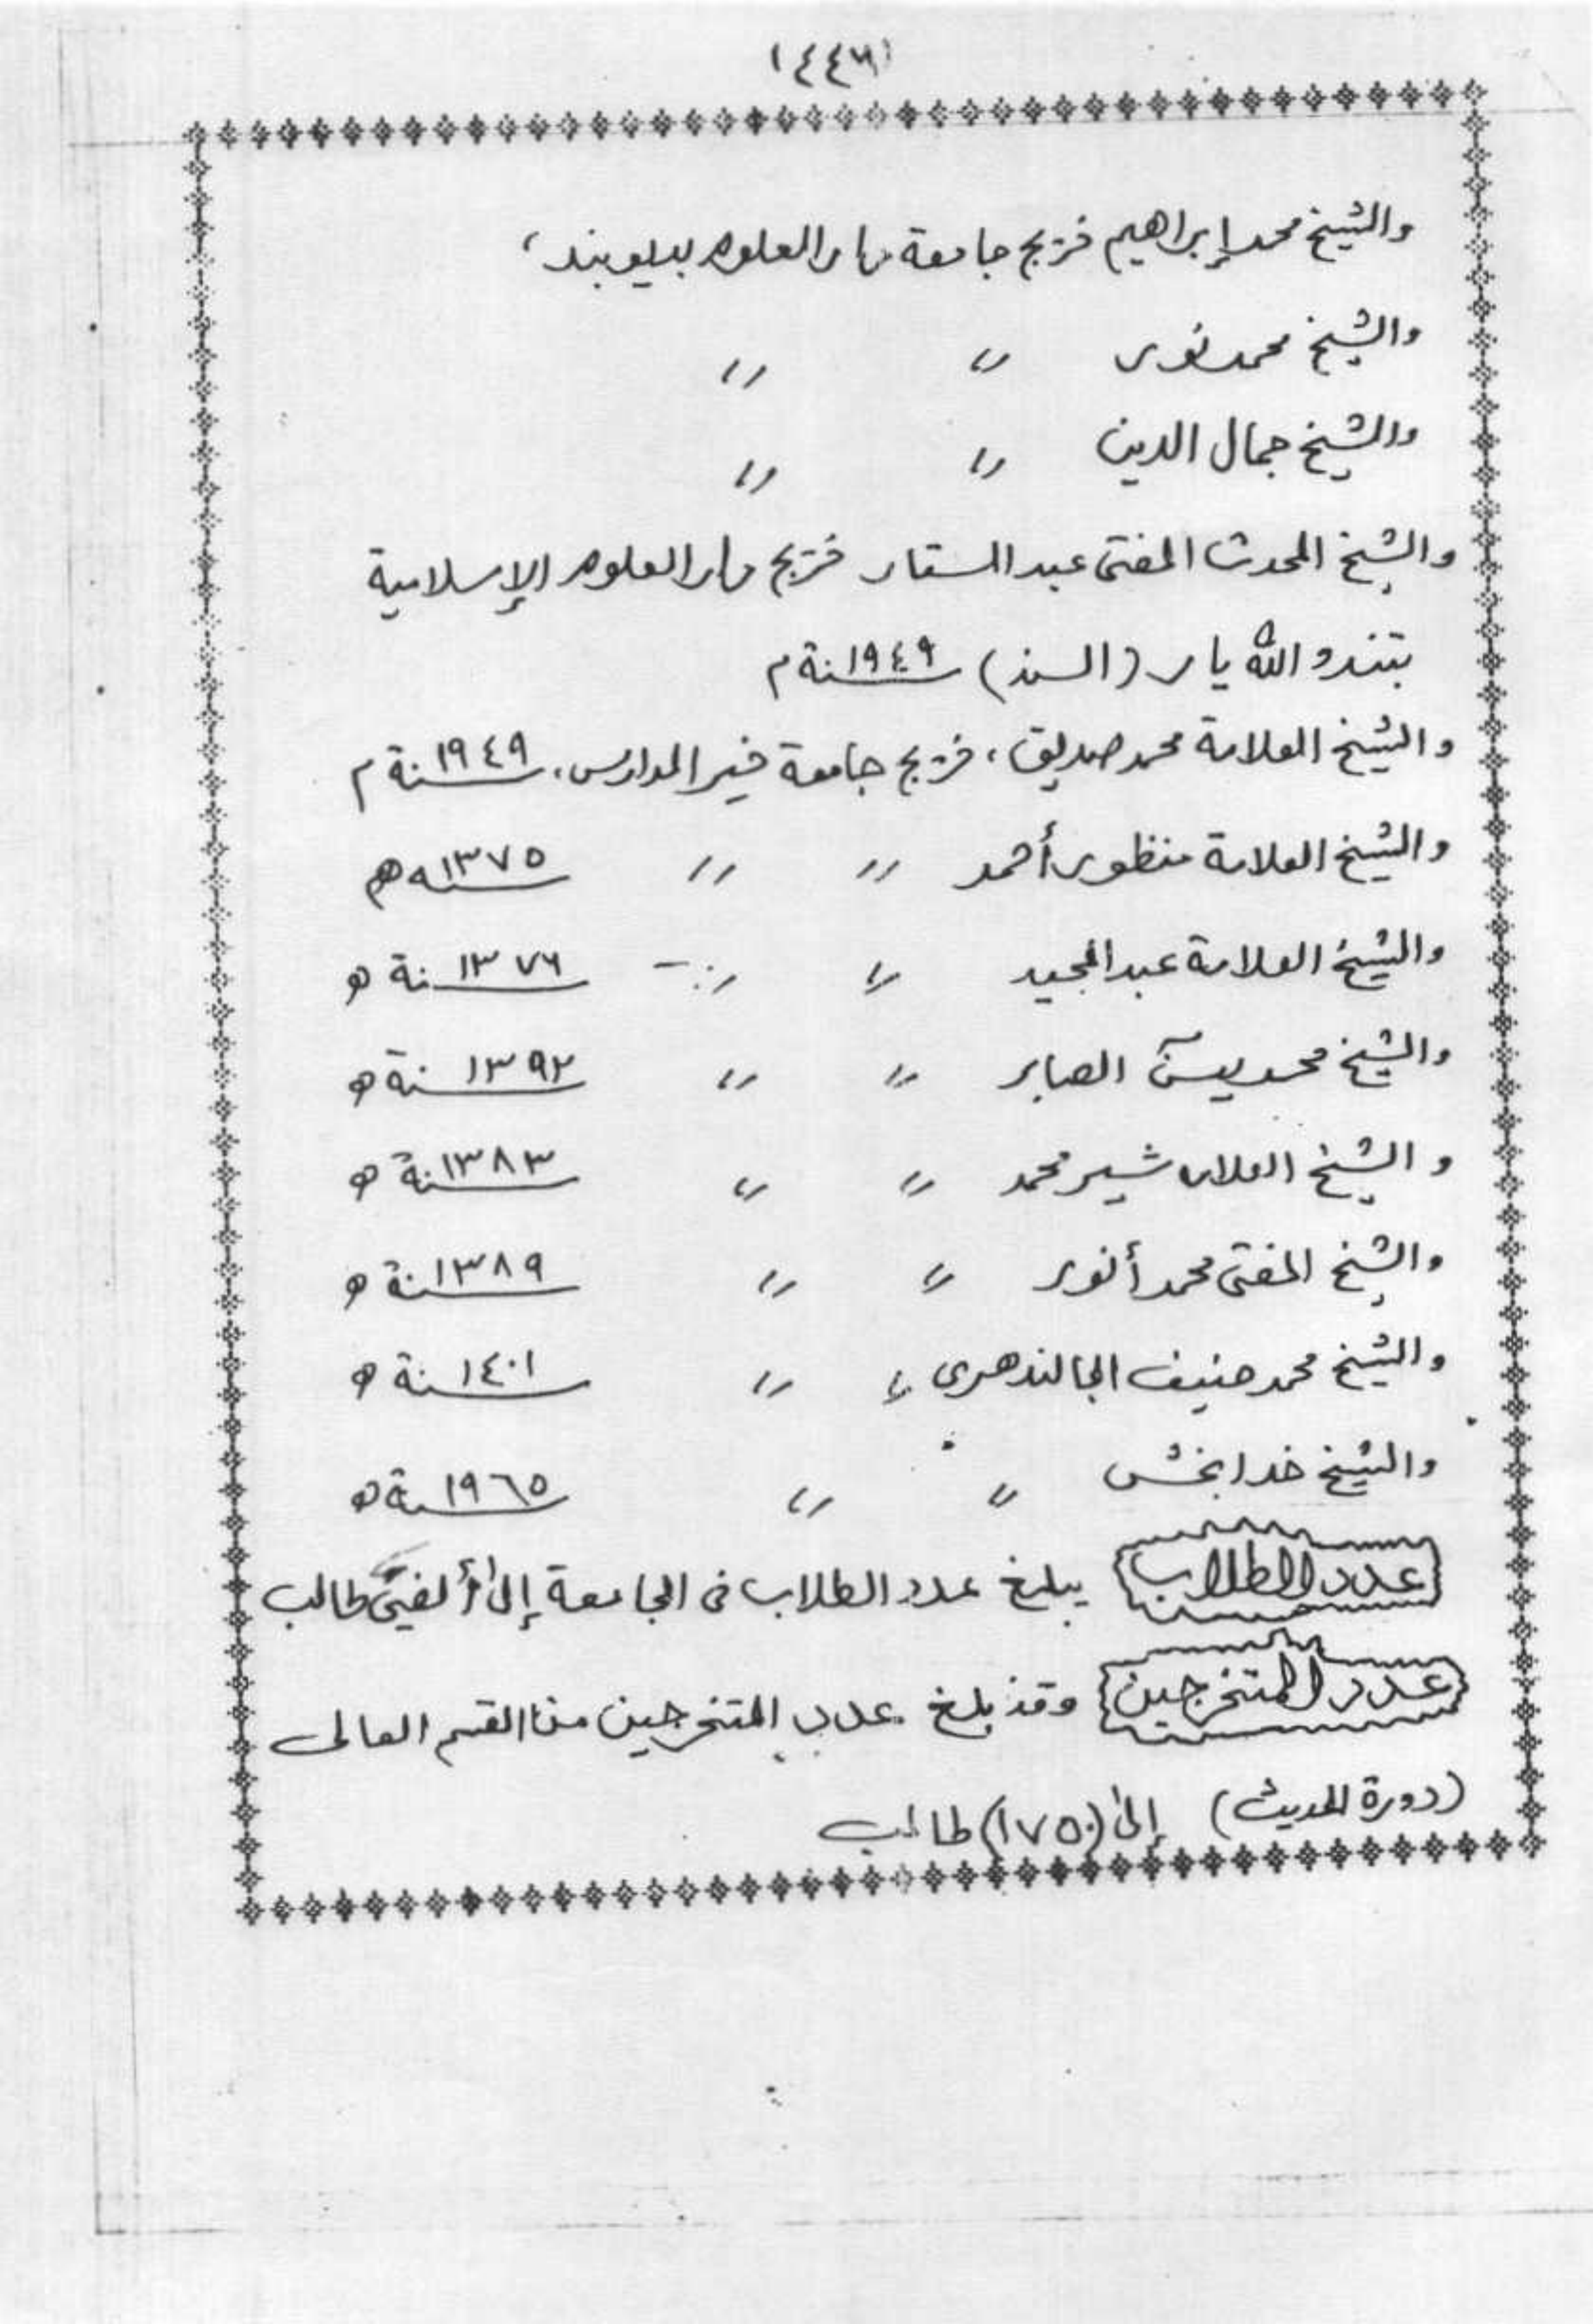 (٤٤٦)
والشيخ محمد إبراهيم خريج جامعة دار العلوم بديوبند،
والشيخ محمد نور 〃 〃
والشيخ جمال الدين 〃 〃
والشيخ المحدث المفتى عبد الستار خريج دار العلوم الإسلامية
بتندو الله يار (السند) سنة ١٩٤٩ م
والشيخ العلامة محمد صديق، خريج جامعة خير المدارس، سنة ١٩٤٩ م
والشيخ العلامة منظور أحمد 〃 〃 سنه ١٣٧٥ هم
والشيخ العلامة عبد المجيد 〃 〃 سنة ١٣٧٦ ه
والشيخ محمد يسٓ الصابر 〃 〃 سنة ١٣٩٢ ه
والشيخ العلامه شير محمد 〃 〃 سنة ١٣٨٣ ه
والشيخ المفتى محمد أنور 〃 〃 سنة ١٣٨٩ ه
والشيخ محمد حنيف الجالندهرى 〃 〃 سنة ١٤٠١ ه
والشيخ خدا بخش 〃 〃 سنة ١٩٦٥ ه
عدد الطلاب يبلغ عدد الطلاب فى الجامعة إلى ألفىْ طالب
عدد المتخرجين وقد بلغ عدد المتخرجين من القسم العالى
(دورة الحديث) إلى (١٧٥٠) طالب